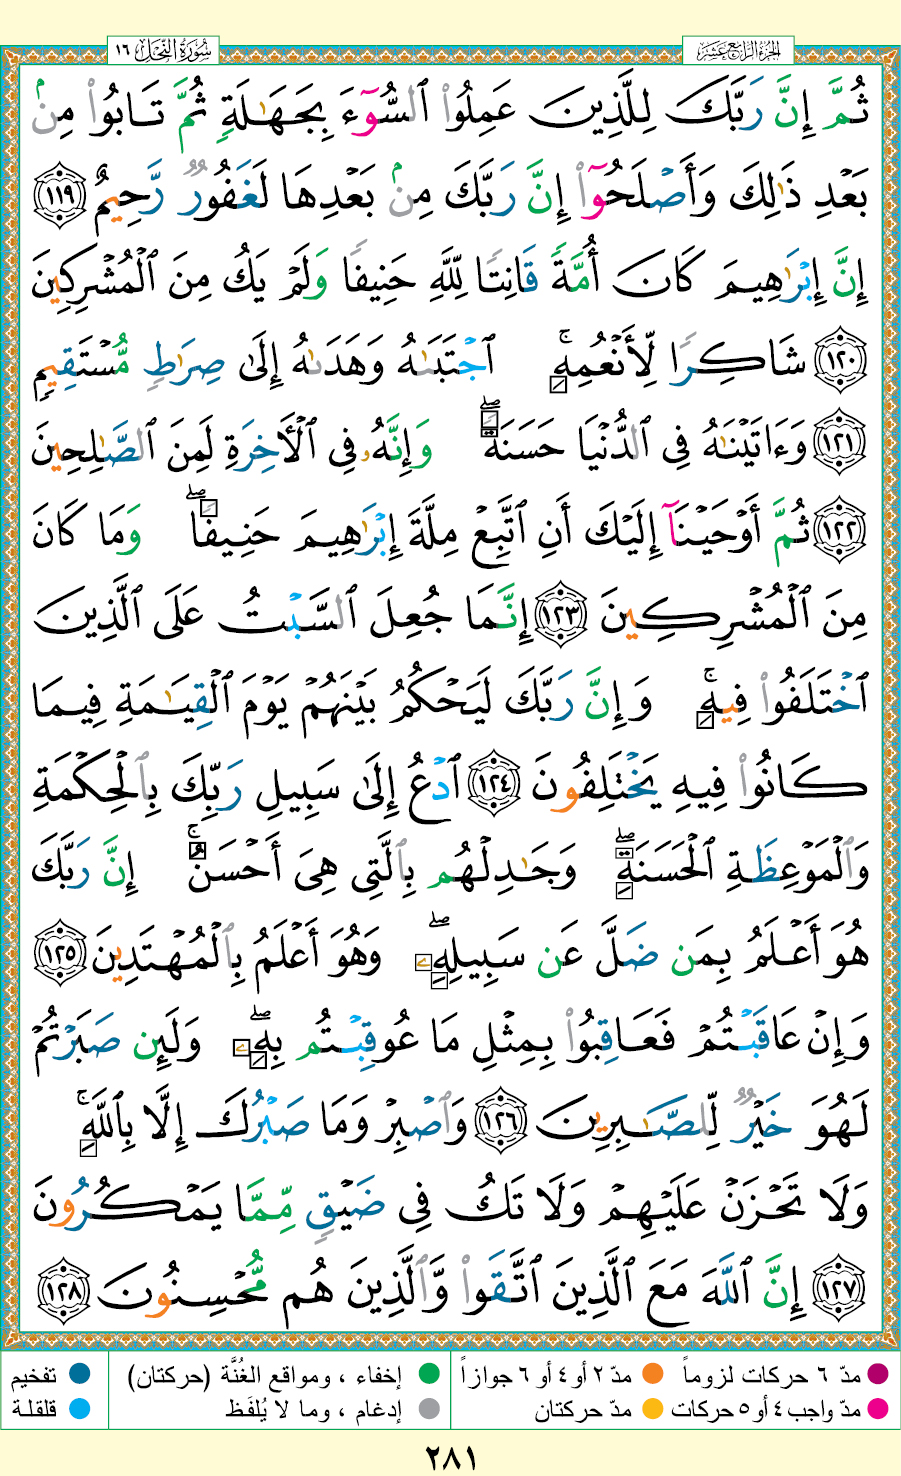 الجزء الرابع عشر
سورة النحل ١٦
ثُمَّ إِنَّ رَبَّكَ لِلَّذِينَ عَمِلُوا۟ ٱلسُّوٓءَ بِجَهَـٰلَةٍ ثُمَّ تَابُوا۟ مِنۢ
بَعْدِ ذَٰلِكَ وَأَصْلَحُوٓا۟ إِنَّ رَبَّكَ مِنۢ بَعْدِهَا لَغَفُورٌ رَّحِيمٌ ١١٩
إِنَّ إِبْرَٰهِيمَ كَانَ أُمَّةً قَانِتًا لِلَّهِ حَنِيفًا وَلَمْ يَكُ مِنَ ٱلْمُشْرِكِينَ
١٢٠ شَاكِرًا لِّأَنْعُمِهِ ۚ ٱجْتَبَىٰهُ وَهَدَىٰهُ إِلَىٰ صِرَٰطٍ مُّسْتَقِيمٍ
١٢١ وَءَاتَيْنَـٰهُ فِى ٱلدُّنْيَا حَسَنَةً ۖ وَإِنَّهُۥ فِى ٱلْـَٔاخِرَةِ لَمِنَ ٱلصَّـٰلِحِينَ
١٢٢ ثُمَّ أَوْحَيْنَآ إِلَيْكَ أَنِ ٱتَّبِعْ مِلَّةَ إِبْرَٰهِيمَ حَنِيفًا ۖ وَمَا كَانَ
مِنَ ٱلْمُشْرِكِينَ ١٢٣ إِنَّمَا جُعِلَ ٱلسَّبْتُ عَلَى ٱلَّذِينَ
ٱخْتَلَفُوا۟ فِيهِ ۚ وَإِنَّ رَبَّكَ لَيَحْكُمُ بَيْنَهُمْ يَوْمَ ٱلْقِيَـٰمَةِ فِيمَا
كَانُوا۟ فِيهِ يَخْتَلِفُونَ ١٢٤ ٱدْعُ إِلَىٰ سَبِيلِ رَبِّكَ بِٱلْحِكْمَةِ
وَٱلْمَوْعِظَةِ ٱلْحَسَنَةِ ۖ وَجَـٰدِلْهُم بِٱلَّتِى هِىَ أَحْسَنُ ۚ إِنَّ رَبَّكَ
هُوَ أَعْلَمُ بِمَن ضَلَّ عَن سَبِيلِهِۦ ۖ وَهُوَ أَعْلَمُ بِٱلْمُهْتَدِينَ ١٢٥
وَإِنْ عَاقَبْتُمْ فَعَاقِبُوا۟ بِمِثْلِ مَا عُوقِبْتُم بِهِۦ ۖ وَلَئِن صَبَرْتُمْ
لَهُوَ خَيْرٌ لِّلصَّـٰبِرِينَ ١٢٦ وَٱصْبِرْ وَمَا صَبْرُكَ إِلَّا بِٱللَّهِ ۚ
وَلَا تَحْزَنْ عَلَيْهِمْ وَلَا تَكُ فِى ضَيْقٍ مِّمَّا يَمْكُرُونَ
١٢٧ إِنَّ ٱللَّهَ مَعَ ٱلَّذِينَ ٱتَّقَوا۟ وَّٱلَّذِينَ هُم مُّحْسِنُونَ ١٢٨
مدّ ٦ حركات لزوماً
مدّ ٢ أو ٤ أو ٦ جوازاً
إخفاء ، ومواقع الغُنَّة (حركتان)
تفخيم
مدّ واجب ٤ أو ٥ حركات
مدّ حركتان
إدغام ، وما لا يُلفَظ
قلقلة
٢٨١